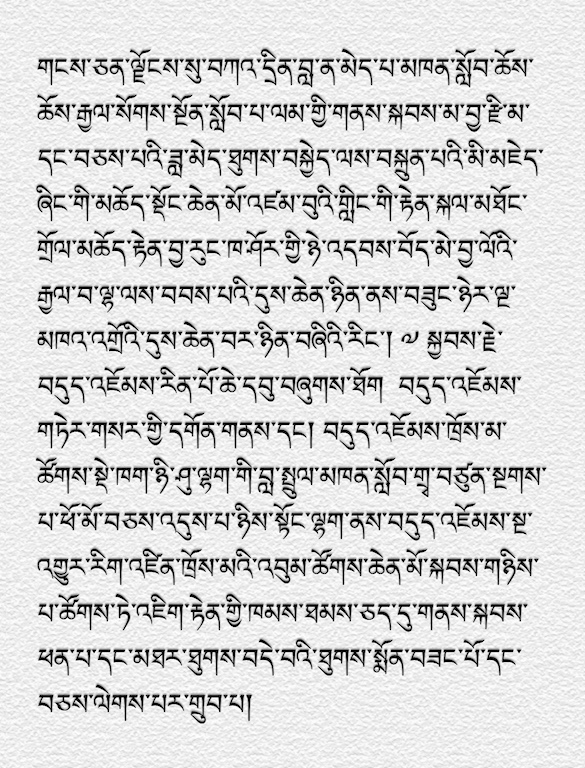 གངས་ཅན་ལྗོངས་སུ་བཀའ་དྲིན་བླ་ན་མེད་པ་མཁན་སློབ་ཆོས་
ཆོས་རྒྱལ་སོགས་སྔོན་སློབ་པ་ལམ་གྱི་གནས་སྐབས་མ་བྱ་རྫི་མ་
དང་བཅས་པའི་ཟླ་མེད་ཐུགས་བསྐྱེད་ལས་བསྐྲུན་པའི་མི་མཇེད་
ཞིང་གི་མཆོད་སྡོང་ཆེན་མོ་འཛམ་བུའི་གླིང་གི་རྟེན་སྐལ་མཐོང་
གྲོལ་མཆོད་རྟེན་བྱ་རུང་ཁ་ཤོར་གྱི་ཉེ་འདབས་བོད་མེ་བྱ་ལོའི་
རྒྱལ་བ་ལྷ་ལས་བབས་པའི་དུས་ཆེན་ཉིན་ནས་བཟུང་ཉེར་ལྔ་
མཁའ་འགྲོའི་དུས་ཆེན་བར་ཉིན་བཞིའི་རིང་། ༧ སྐྱབས་རྗེ་
བདུད་འཇོམས་རིན་པོ་ཆེ་དབུ་བཞུགས་ཐོག བདུད་འཇོམས་
གཏེར་གསར་གྱི་དགོན་གནས་དང་། བདུད་འཇོམས་ཁྲོས་མ་
ཚོགས་སྡེ་ཁག་ཉི་ཤུ་ལྷག་གི་བླ་སྤྲུལ་མཁན་སློབ་གྲྭ་བཙུན་སྔགས་
པ་ཕོ་མོ་བཅས་འདུས་པ་ཉིས་སྟོང་ལྷག་ནས་བདུད་འཇོམས་སྔ་
འགྱུར་རིག་འཛིན་ཁྲོས་མའི་འབུམ་ཚོགས་ཆེན་མོ་སྐབས་གཉིས་
པ་ཚོགས་ཏེ་འཇིག་རྟེན་གྱི་ཁམས་ཐམས་ཅད་དུ་གནས་སྐབས་
ཕན་པ་དང་མཐར་ཐུགས་བདེ་བའི་ཐུགས་སྨོན་བཟང་པོ་དང་
བཅས་ལེགས་པར་གྲུབ་པ།